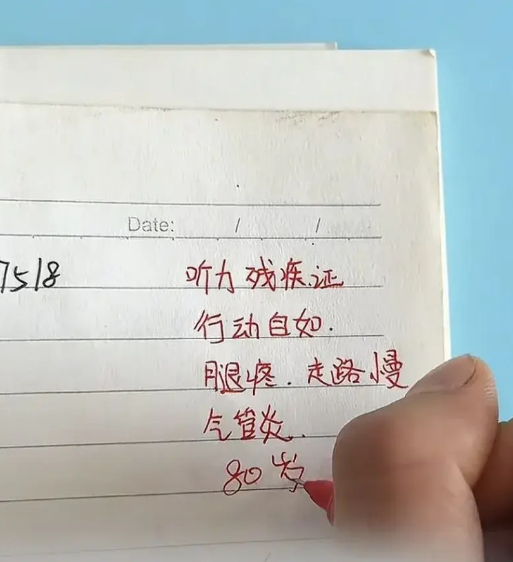 Date: / /
7518
听力残疾证
行动自如.
腿疼.走路慢
气管炎.
80岁